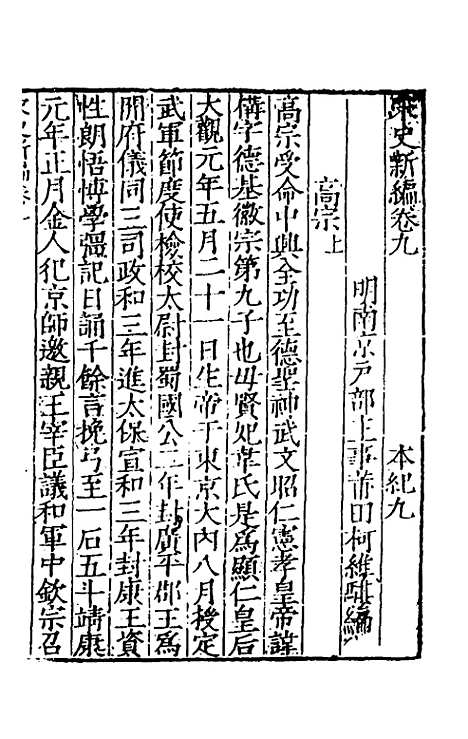 宋史新編卷九 本紀九
明南京戶部主事莆田柯維騏編
高宗上
高宗受命中興全功至德聖神武文昭仁憲孝皇帝諱
構字德基徽宗第九子也母賢妃韋氏是爲顯仁皇后
大觀元年五月二十一日生帝于東京大內八月授定
武軍節度使檢校太尉封蜀國公二年封廣平郡王爲
開府儀同三司政和三年進太保宣和三年封康王資
性朗悟博學彊記日誦千餘言挽弓至一石五斗靖康
元年正月金人犯京師邀親王宰臣議和軍中欽宗召